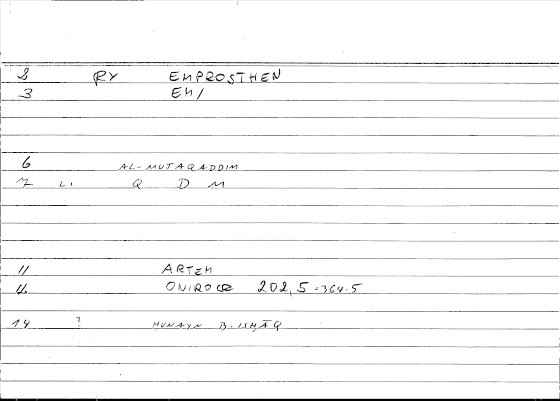 2 RY EMPROSTHEN
3 EM/
6 AL-MUTAQADDIM
7 LI Q D M
11 ARTEM
12 ONIROCR 202,5-364.5
14 ? HUNAYN B.ISHĀQ